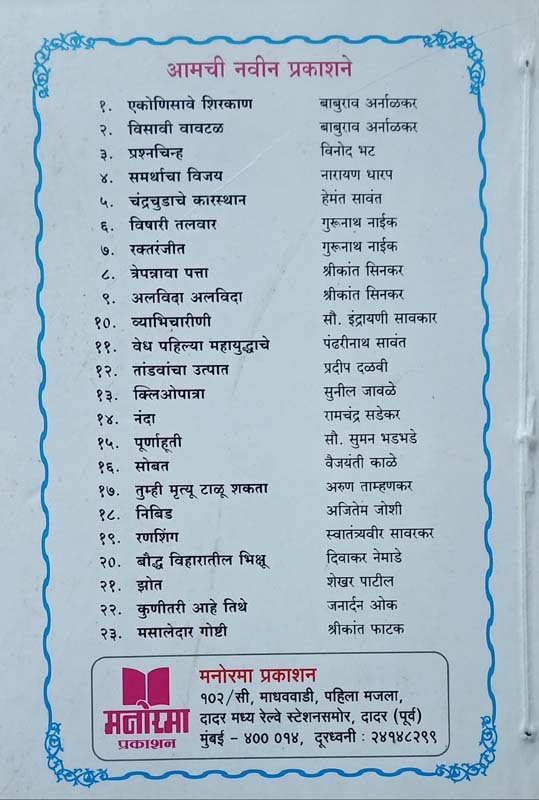 आमची नवीन प्रकाशने
१. एकोणिसावे शिरकाण बाबुराव अर्नाळकर
२. विसावी वावटळ बाबुराव अर्नाळकर
३. प्रश्नचिन्ह विनोद भट
४. समर्थाचा विजय नारायण धारप
५. चंद्रचुडाचे कारस्थान हेमंत सावंत
६. विषारी तलवार गुरूनाथ नाईक
७. रक्तरंजीत गुरूनाथ नाईक
८. त्रेपन्नावा पत्ता श्रीकांत सिनकर
९. अलविदा अलविदा श्रीकांत सिनकर
१०. व्याभिचारीणी सौ. इंद्रायणी सावकार
११. वेध पहिल्या महायुद्धाचे पंढरीनाथ सावंत
१२. तांडवांचा उत्पात प्रदीप दळवी
१३. क्लिओपात्रा सुनील जावळे
१४. नंदा रामचंद्र सडेकर
१५. पूर्णाहूती सौ. सुमन भडभडे
१६. सोबत वैजयंती काळे
१७. तुम्ही मृत्यू टाळू शकता अरुण ताम्हणकर
१८. निबिड अजितेम जोशी
१९. रणशिंग स्वातंत्र्यवीर सावरकर
२०. बौद्ध विहारातील भिक्षू दिवाकर नेमाडे
२१. झोत शेखर पाटील
२२. कुणीतरी आहे तिथे जनार्दन ओक
२३. मसालेदार गोष्टी श्रीकांत फाटक
मनोरमा
प्रकाशन
मनोरमा प्रकाशन
१०२/सी, माधववाडी, पहिला मजला,
दादर मध्य रेल्वे स्टेशनसमोर, दादर (पूर्व)
मुंबई - ४०० ०१४, दूरध्वनी : २४१४८२९९